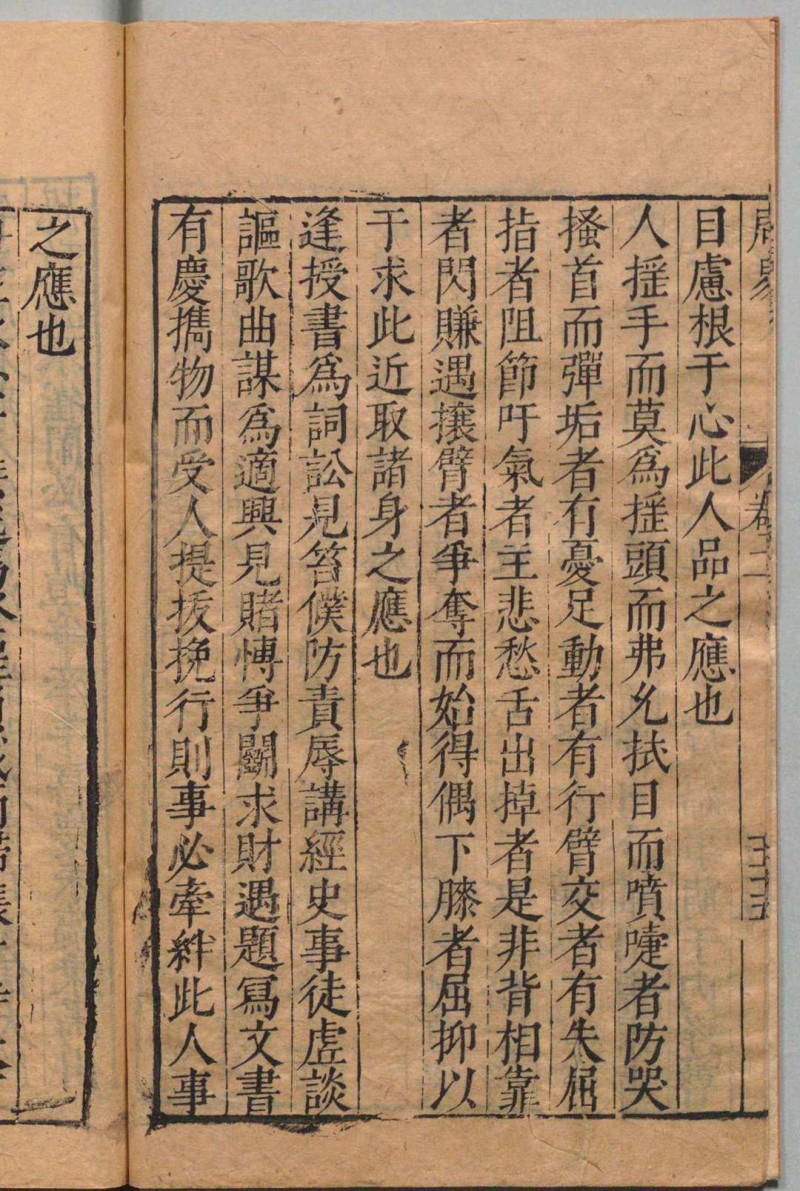 卷二
三十五
目慮根于心此人品之應也
人揺手而莫為揺頭而弗允拭目而噴嚏者防哭
搔首而彈垢者有憂足動者有行臂交者有失屈
指者阻節吁氣者主悲愁舌出掉者是非背相靠
者閃賺遇攘臂者爭奪而始得偶下膝者屈抑以
于求此近取諸身之應也
逢授書為詞訟見笞僕防責辱講經史事徒虗談
謳歌曲謀為適興見賭愽爭鬬求財遇題寫文書
有慶擕物而受人提抜挽行則事必牽絆此人事
之應也